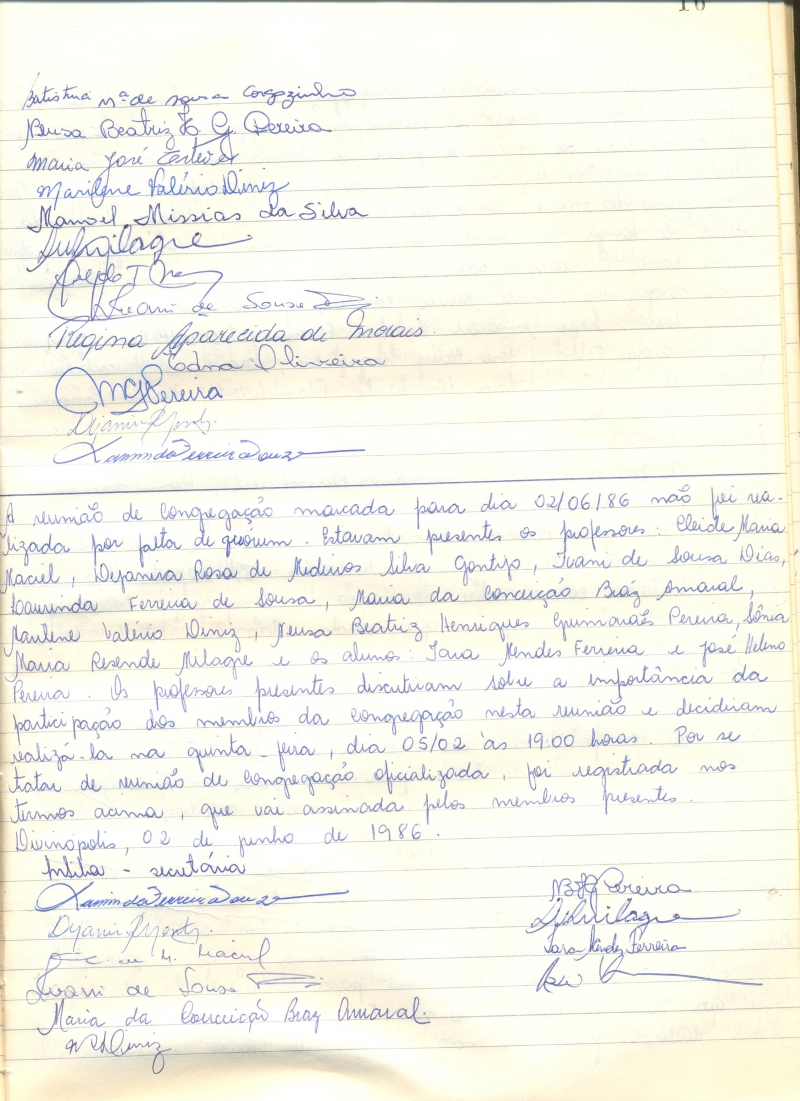 16
Batistina Mª de Sousa Corgozinho
Neusa Beatriz H. G. Pereira
Maria José
Marilene Valério Diniz
Manoel Missias da Silva
Milagre
Ivani de Sousa
Regina Aparecida de Morais.
Edna Oliveira
Pereira
Laurinda Ferreira Souza
A reunião de congregação marcada para dia 02/06/86 não foi rea-
lizada por falta de quórum. Estavam presentes os professores: Cleide Maria
Maciel, Dejanira Rosa de Medeiros Silva Gontijo, Ivani de Sousa Dias,
Laurinda Ferreira de Sousa, Maria da Conceição Bráz Amaral,
Marilene Valério Diniz, Neusa Beatriz Henriques Guimarães Pereira, Sônia
Maria Resende Milagre e os alunos: Iara Mendes Ferreira e José Heleno
Pereira. Os professores presentes discutiram sobre a importância da
participação dos membros da congregação nesta reunião e decidiram
realizá-la na quinta-feira, dia 05/02 às 19.00 horas. Por se
tratar de reunião de congregação oficializada, foi registrada nos
termos acima, que vai assinada pelos membros presentes.
Divinópolis, 02 de junho de 1986.
- secretária
Laurinda Ferreira Souza
NBHG Pereira
Milagre
C. M. Maciel
Iara Mendes Ferreira
Ivani de Sousa
Maria da Conceição Braz Amaral.
Diniz